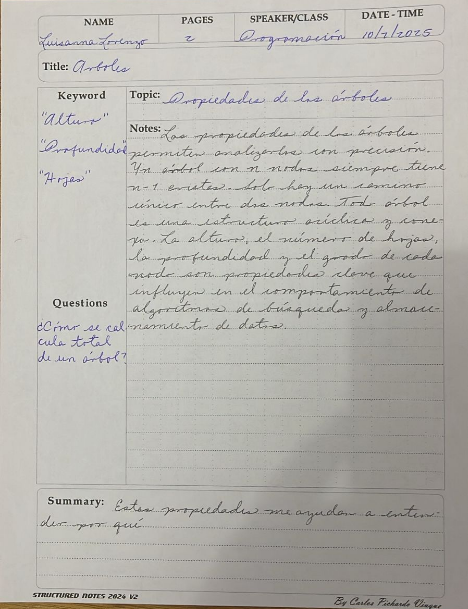 NAME PAGES SPEAKER/CLASS DATE - TIME
Luisanna Lorenzo 2 Programación 10/7/2025
Title: Arboles
Keyword
"Altura"
"Profundidad"
"Hojas"
Questions
¿Cómo se cal
cula total
de un árbol?
Topic: Propiedades de los árboles
Notes: Las propiedades de los árboles
permiten analizarlos con precisión.
Un árbol con n nodos siempre tiene
n-1 aristas. Solo hay un camino
único entre dos nodos. Tod árbol
es una estructura acíclica y cone-
xa. La altura, el número de hojas,
la profundidad y el grado de cada
nodo son propiedades clave que
influyen en el comportamiento de
algoritmos de búsqueda y almace-
namiento de datos.
Summary: Estas propiedades me ayudan a enten-
der por qué
STRUCTURED NOTES 2024 V2
By Carlos Pichardo Vinque